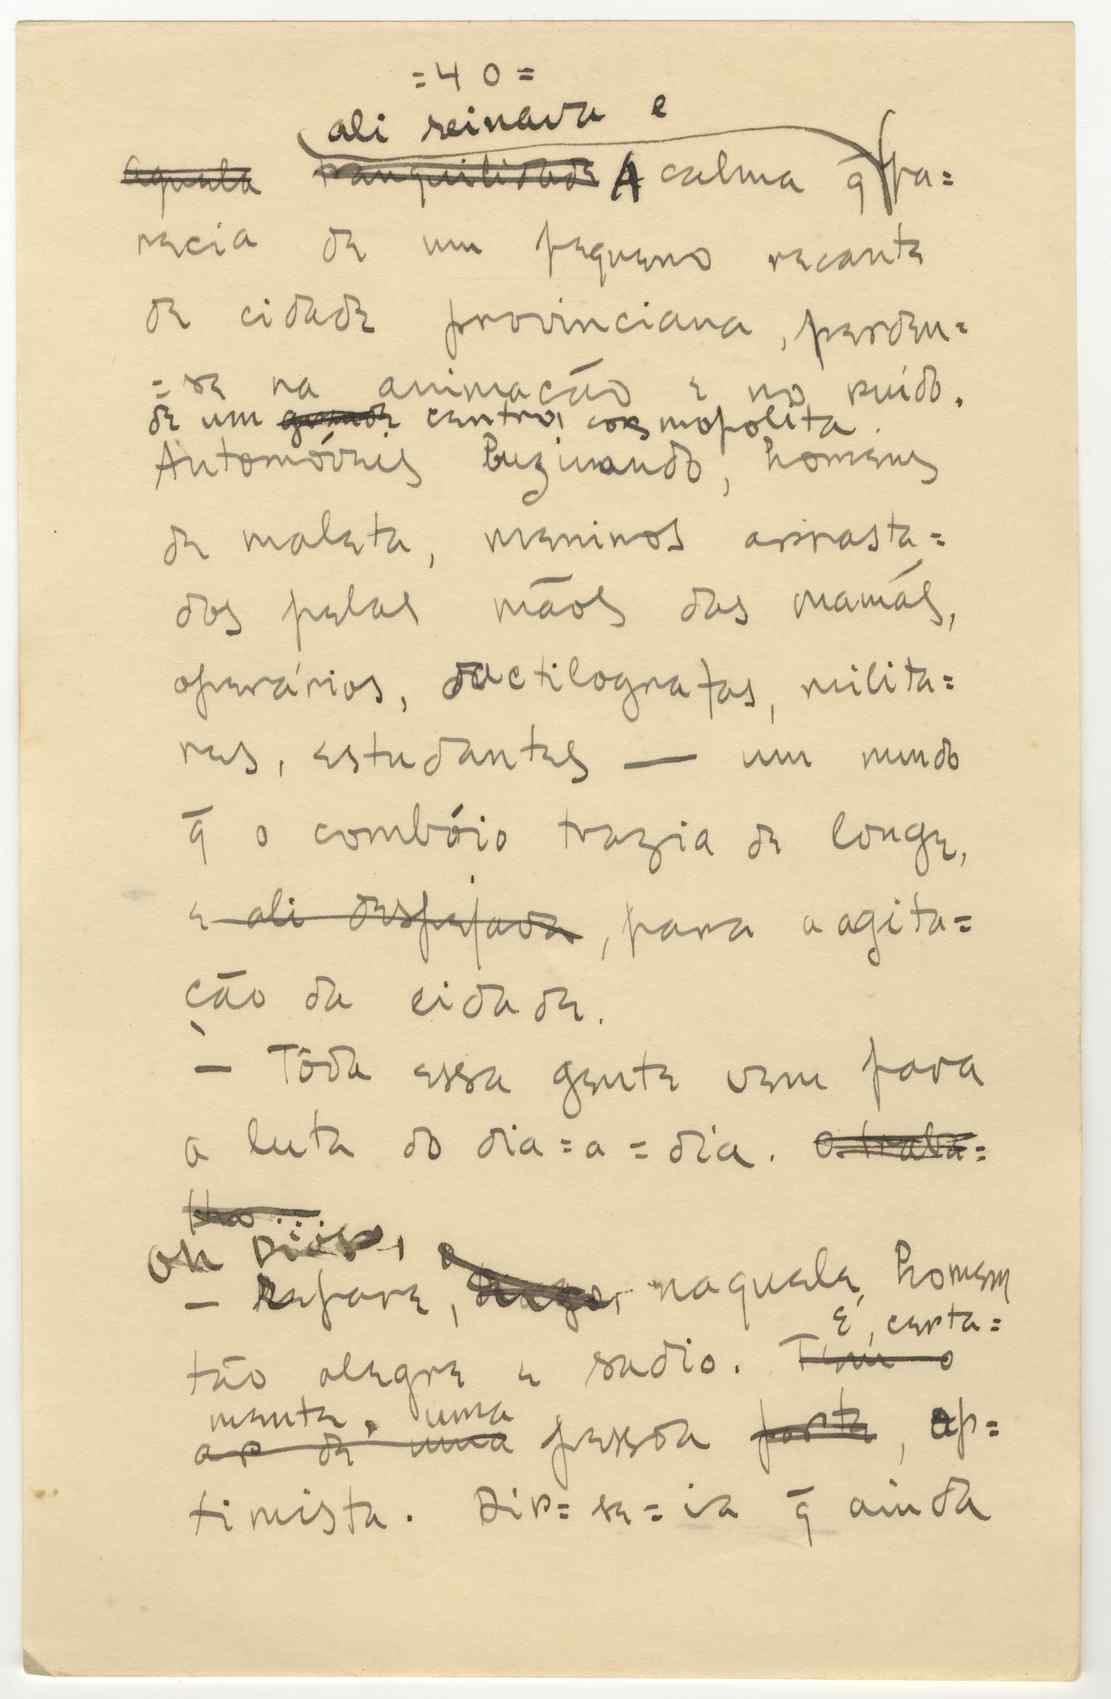 = 40 =
ali reinava e
Aquela tranquilidade A calma q̄ pa=
recia de um pequeno recanto
de cidade provinciana, perdeu=
=se na animação e no ruído.
de um grande centro cosmopolita.
Automóveis buzinando, homens
de maleta, meninos arrasta=
dos pelas mãos das mamãs,
operários, dactilografas, milita=
res, estudantes — um mundo
q̄ o combóio trazia de longe,
e ali despejava, para a agita=
ção da cidade.
— Tôda essa gente vem para
a luta do dia=a=dia. O traba=
lho...
Oh
— Repare, naquele homem
É, certa=
tão alegre e sadio. Tem o
mente, uma
ar de uma pessoa forte, op=
timista. Dir=se=ia q̄ ainda